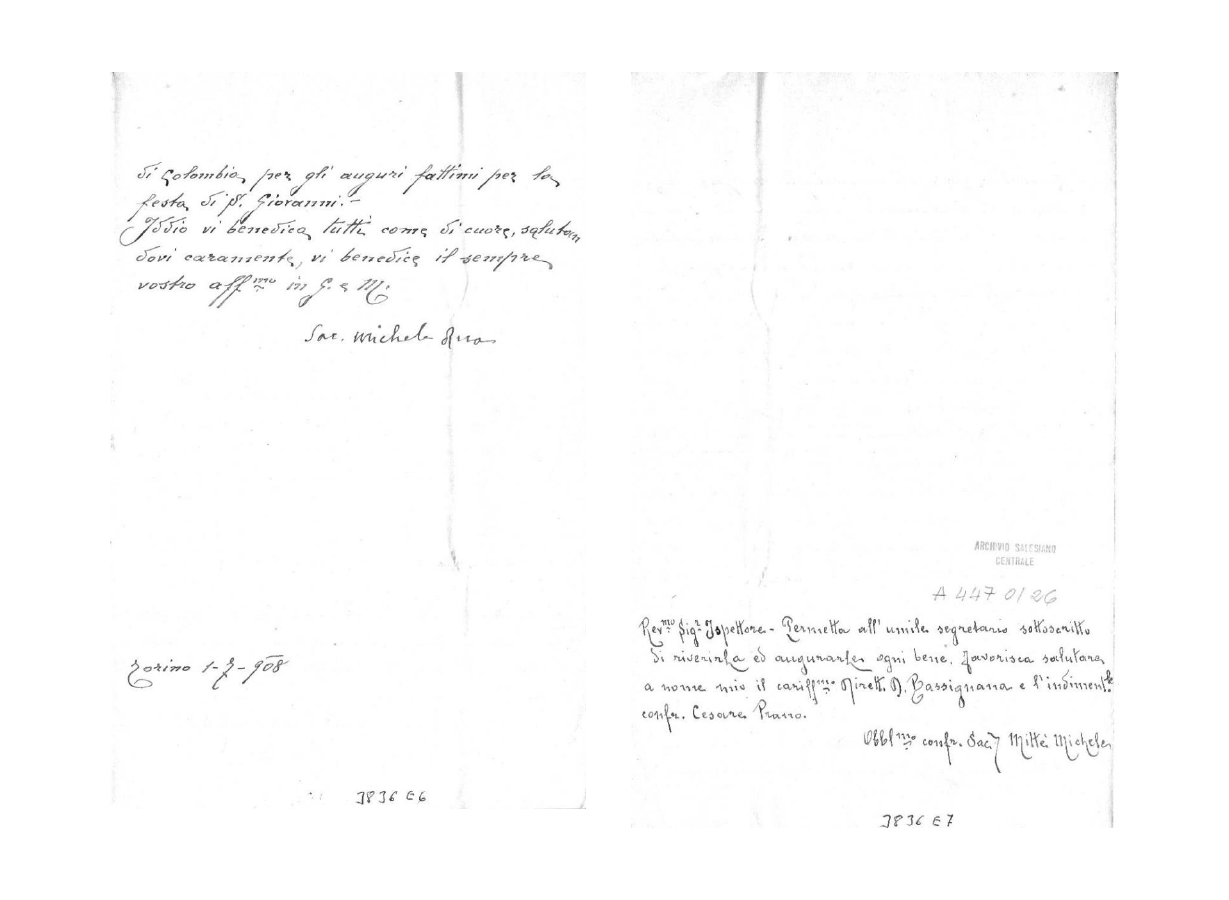 di Colombia per gli auguri fattimi per la
festa di S. Giovanni.-
Iddio vi benedica tutti come di cuore, salutan
dovi caramente, vi benedice il sempre
vostro aff.mo in G. e M.
Sac. Michele Rua
Torino 1-7-908
3836 E6
ARCHIVIO SALESIANO
CENTRALE
A 447 01 26
Rev.mo Sig.r Ispettore - Permetta all' umile segretario sottoscritto
di riverirla ed augurarle ogni bene. Favorisca salutare
a nome mio il cariss.mo Dirett. D. Bassignana e l'indiment.le
confr. Cesare Prano.
Obbl.mo confr. Sac. Mittè Michele
3836 E7